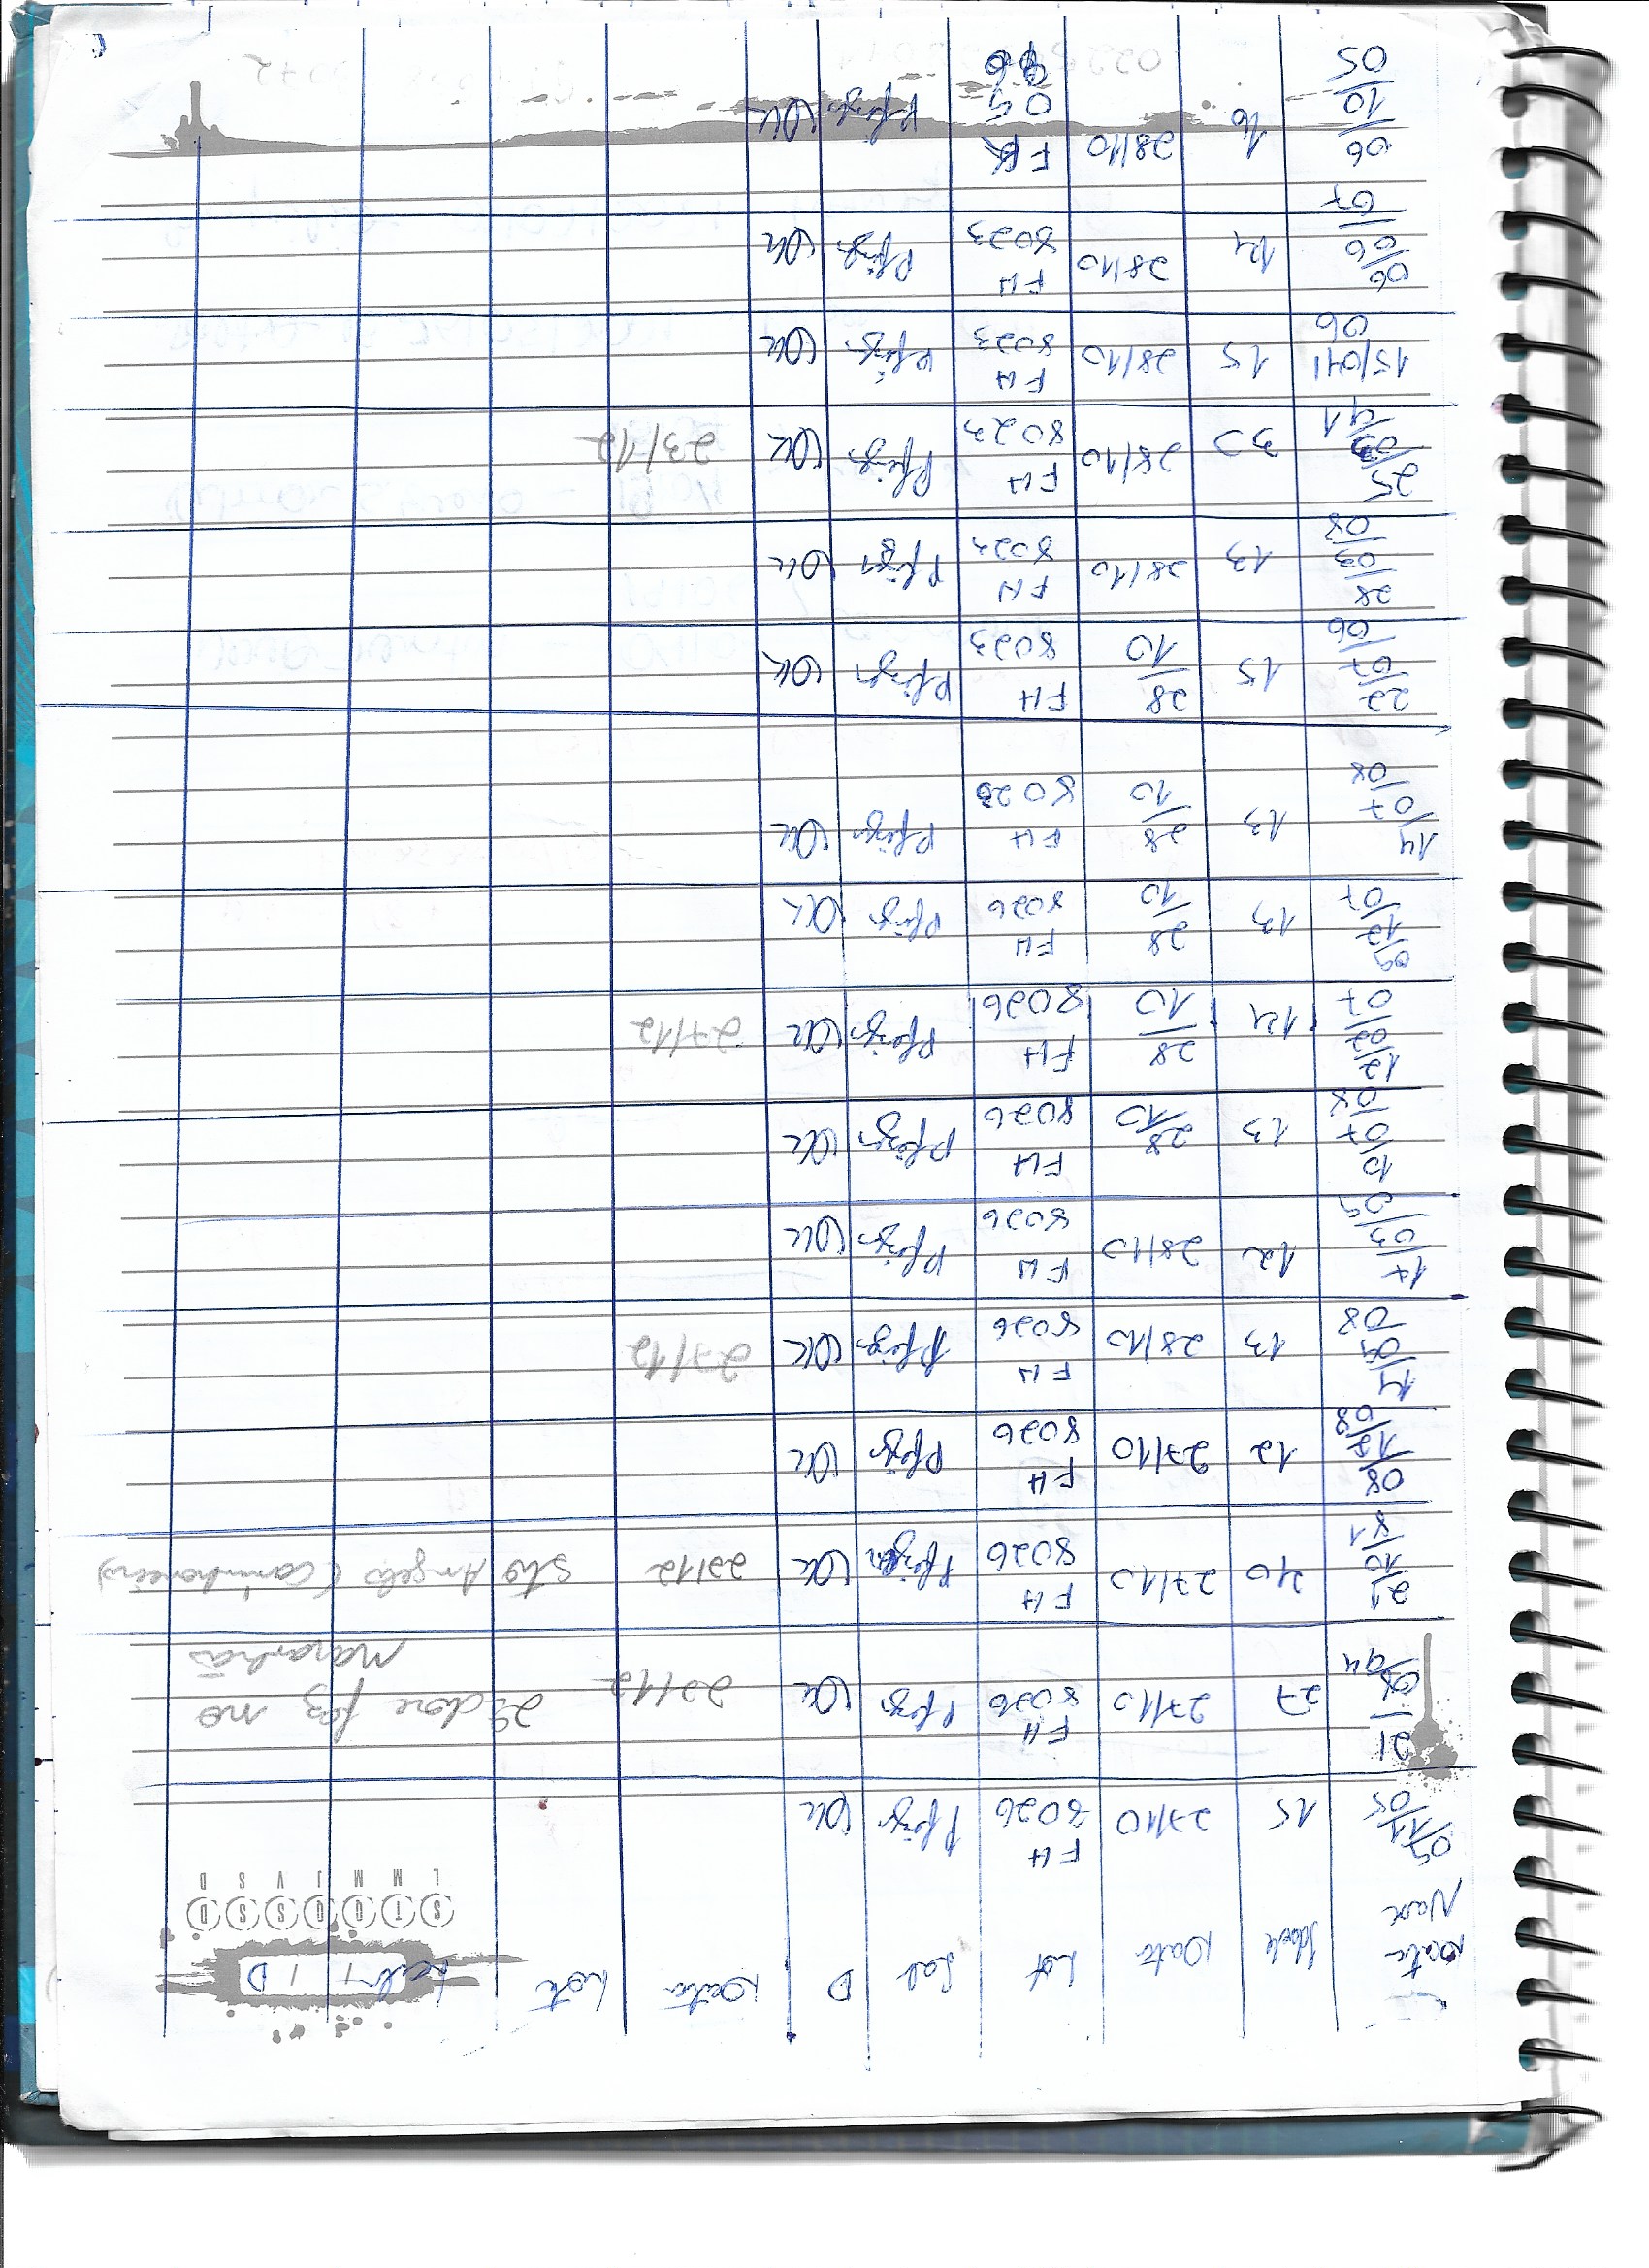 Data Nasc Idade Data Lot Lab D Data Lote Lab D
S T Q Q S S D
L M M J V S D
05/11/05 15 27/10 FH 8026 Pfizer OK
21/08/94 27 27/10 FH 8026 Pfizer OK 22/12 2ª dose fez no Maranhão
21/10/81 40 27/10 FH 8026 Pfizer OK 22/12 Sto Angelo (Caminhoneiro)
08/12/08 12 27/10 FH 8026 Pfizer OK
14/09/08 13 28/10 FH 8026 Pfizer OK 27/12
17/03/09 12 28/10 FH 8026 Pfizer OK
10/07/08 13 28/10 FH 8026 Pfizer OK
12/02/07 14 28/10 FH 8026 Pfizer OK 27/12
09/12/07 13 28/10 FH 8026 Pfizer OK
14/07/08 13 28/10 FH 8023 Pfizer OK
22/07/06 15 28/10 FH 8023 Pfizer OK
28/03/08 13 28/10 FH 8023 Pfizer OK
25/03/91 30 28/10 FH 8023 Pfizer OK 23/12
15/04/06 15 28/10 FH 8023 Pfizer OK
06/06/07 14 28/10 FH 8023 Pfizer OK
06/10/05 16 28/10 FK 05 96 Pfizer OK